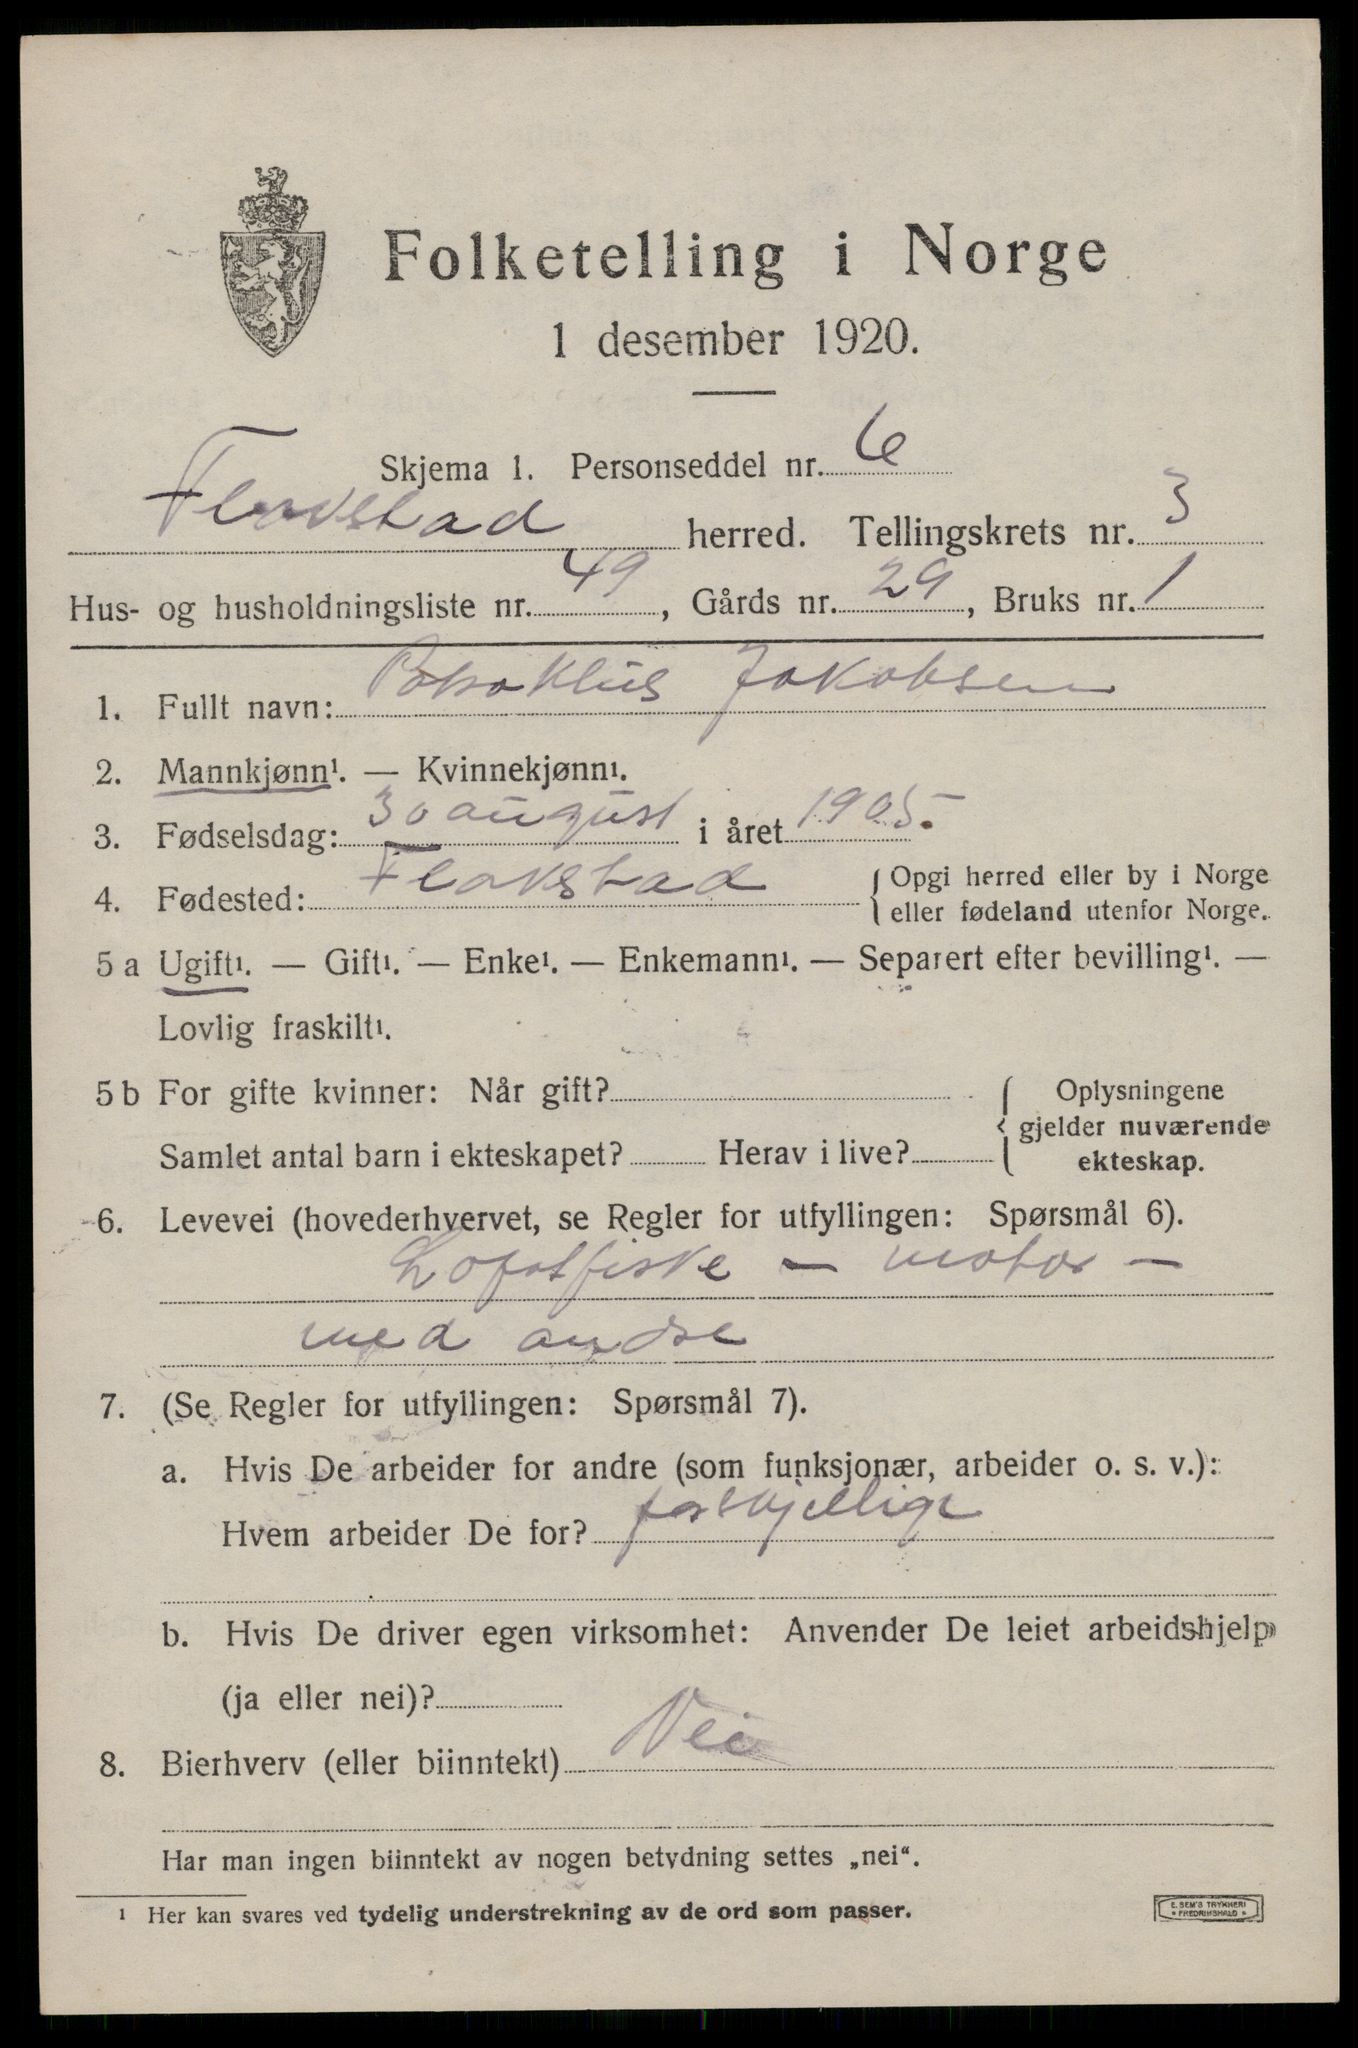 Folketelling i Norge
1 desember 1920.
Skjema 1. Personseddel nr. 6
Flakstad herred. Tellingskrets nr. 3
Hus- og husholdningsliste nr. 49, Gårds nr. 29, Bruks nr. 1
1. Fullt navn: Jakobsen
2. Mannkjønn¹. — Kvinnekjønn¹.
3. Fødselsdag: 30 august i året 1905.
4. Fødested: Flakstad { Opgi herred eller by i Norge
eller fødeland utenfor Norge.
5 a Ugift¹. — Gift¹. — Enke¹. — Enkemann¹. — Separert efter bevilling¹. —
Lovlig fraskilt¹.
5 b For gifte kvinner: Når gift?
Samlet antal barn i ekteskapet? Herav i live?
{ Oplysningene
gjelder nuværende
ekteskap.
6. Levevei (hovederhvervet, se Regler for utfyllingen: Spørsmål 6).
Lofotfiske — motor —
med andre
7. (Se Regler for utfyllingen: Spørsmål 7).
a. Hvis De arbeider for andre (som funksjonær, arbeider o. s. v.):
Hvem arbeider De for? forskjellige
b. Hvis De driver egen virksomhet: Anvender De leiet arbeidshjelp
(ja eller nei)?
8. Bierhverv (eller biinntekt) Nei
Har man ingen biinntekt av nogen betydning settes „nei“.
¹ Her kan svares ved tydelig understrekning av de ord som passer.
E. SEM'S TRYKKERI
* FREDRIKSHALD *